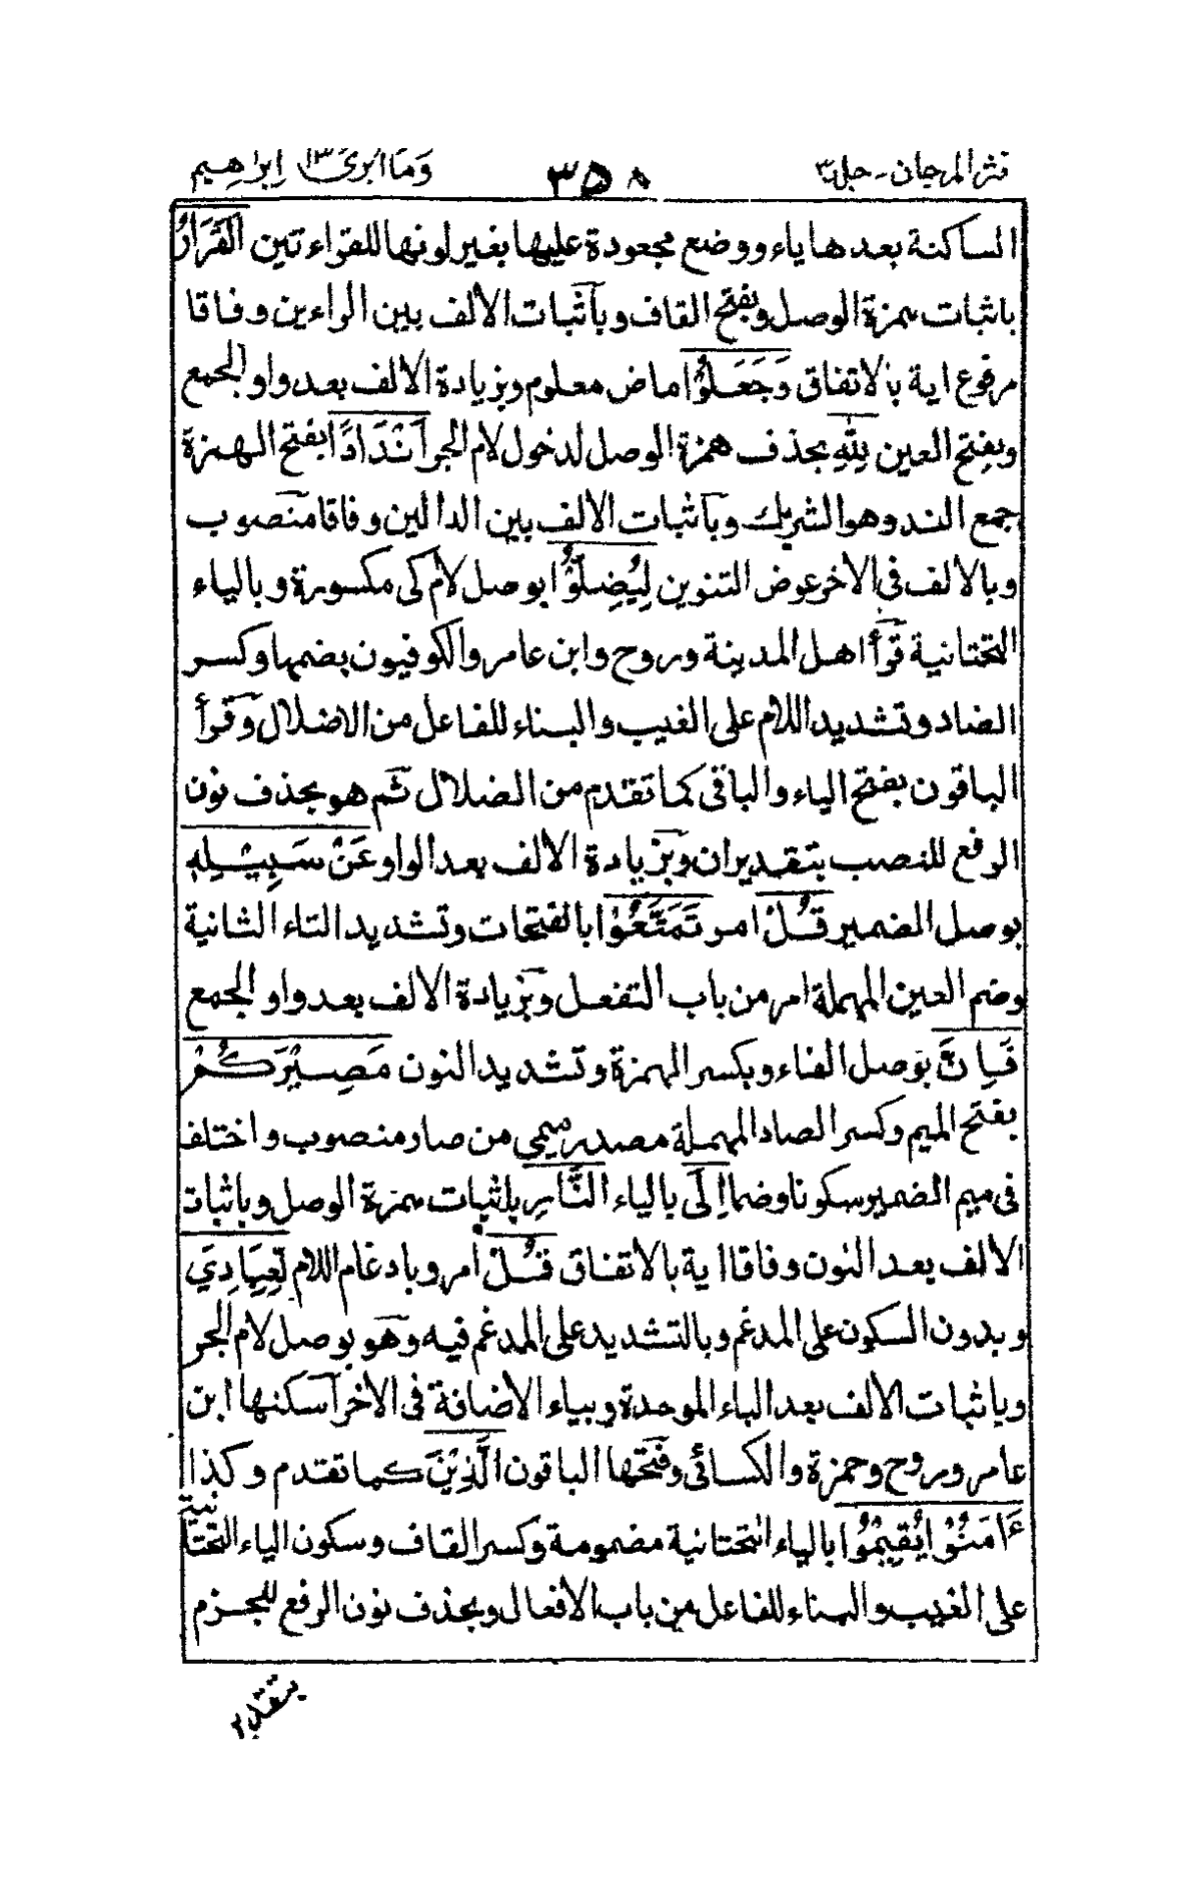 نثر المرجان - جلد ٣ ٣٥٨ وَمَا اُبَرِّئُ ١٣ اِبرٰهِيم
الساكنة بعدها ياء ووضع مجعودة عليها بغير لونها للقراءتين اَلْقَرَارُ
باثبات همزة الوصل وبفتح القاف وبآثبات الالف بين الراءين وفاقا
مرفوع اية بالاتفاق وَجَعَلُوْا ماض معلوم وبزيادة الالف بعد واو الجمع
وبفتح العين لِلّٰهِ بحذف همزة الوصل لدخول لام الجر اَنْدَادًا بفتح الهمزة
جمع الند وهو الشريك وبآثبات الالف بين الدالين وفاقا منصوب
وبالالف في الاخر عوض التنوين لِيُضِلُّوْا بوصل لام كى مكسورة وبالياء
التحتانية قرأ اهل المدينة وروح وابن عامر والكوفيون بضمها وكسر
الضاد وتشديد اللام على الغيب والبناء للفاعل من الاضلال وقرأ
الباقون بفتح الياء والباقى كما تقدم من الضلال ثم هو بحذف نون
الرفع للنصب بتقدير ان وبزيادة الالف بعد الواو عَنْ سَبِيْلِهٖ
بوصل الضمير قُلْ امر تَمَتَّعُوْا بالفتحات وتشديد التاء الثانية
وضم العين المهملة امر من باب التفعل وبزيادة الالف بعد واو الجمع
فَاِنَّ بوصل الفاء وبكسر الهمزة وتشديد النون مَصِيْرَكُمْ
بفتح الميم وكسر الصاد المهملة مصدر ميمى من صار منصوب واختلف
فى ميم الضمير سكونا وضما اِلَى بالياء النَّارِ باثبات همزة الوصل وباثبات
الالف بعد النون وفاقا اية بالاتفاق قُلْ امر وبادغام اللام لِّعِبَادِيَ
وبدون السكون على المدغم وبالتشديد على المدغم فيه وهو بوصل لام الجر
وباثبات الالف بعد الباء الموحدة وبياء الاضافة فى الاخر آسكنها ابن
عامر وروح وحمزة والكسائى وفتحها الباقون الَّذِيْنَ كما تقدم وكذا
ءَامَنُوْا يُقِيْمُوْا بالياء التحتانية مضمومة وكسر القاف وسكون الياء التحتانية
على الغيب والبناء للفاعل من باب الافعال وبحذف نون الرفع للجزم